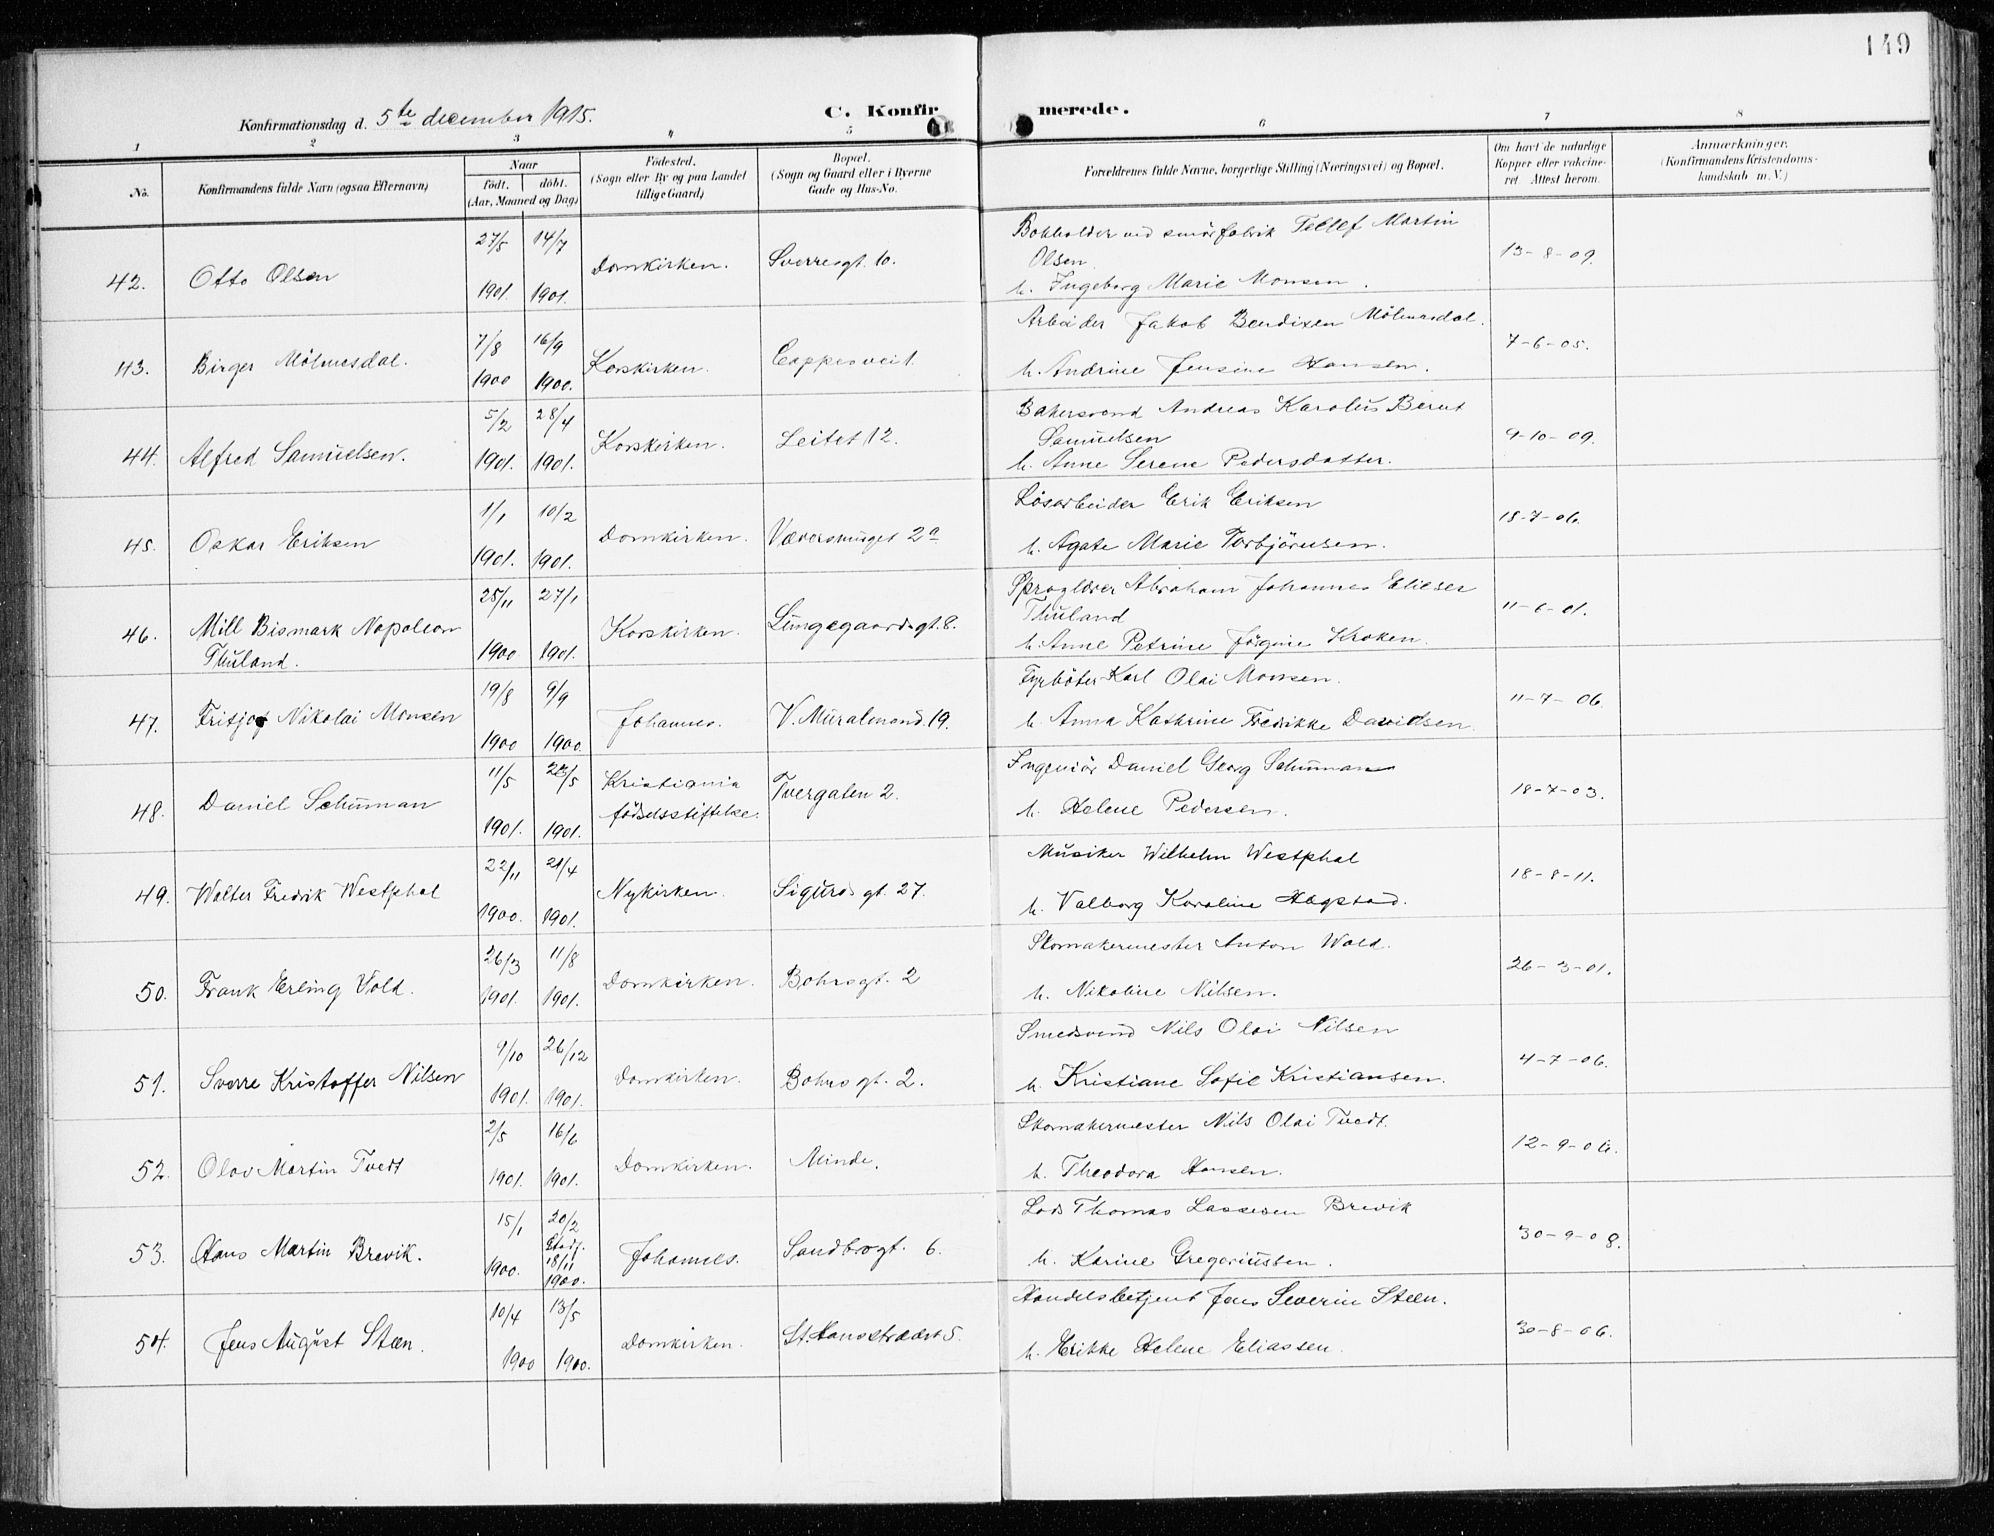 149
Konfirmationsdag d. 5te december 1915. C. Konfirmerede.
1 2 3 4 5 6 7 8
No. Konfirmandens fulde Navn (ogsaa Efternavn) Naar født. døbt. (Aar, Maaned og Dag) Fødested. (Sogn eller By og paa Landet tillige Gaard) Bopæl. (Sogn og Gaard eller i Byerne Gade og Hus-No. Forældrenes fulde Navne, borgerlige Stilling (Næringsvei) og Bopæl. Om havt de naturlige Kopper eller vakcineret. Attest herom. Anmærkninger. (Konfirmandens Kristendomskundskab m. V.)
42. Otto Olsen 27/5 1901. 14/7 1901. Domkirken. Sverresgt. 10. Bokholder ved smørfabrik Tellef Martin Olsen h. Ingeborg Marie Monsen. 13-8-09.
43. Birger Mölmesdal. 7/8 1900 16/9 1900. Korskirken. Arbeider Jakob Bendixen Mölmesdal. h. Andrine Jensine Hansen. 7-6-05.
44. Alfred Samuelsen. 5/2 1901. 28/4 1901. Korskirken. Leitet 12. Bakersvend Andreas Karolus Berut Samuelsen h. Anne Serene Pedersdatter. 9-10-09.
45. Oskar Eriksen 1/1 1901. 10/2 1901. Domkirken. Væversmuget 2a Løsarbeider Erik Eriksen h. Agate Marie Torbjörnsen. 18-7-06.
46. Mill Bismark Napoleon Thuland. 25/11 1900 27/1 1901. Korskirken. Lungegaardsgt. 8. Sproglærer Abraham Johannes Elieser Thuland h. Anne Petrine Jörgine Kroken. 11-6-01.
47. Fritjof Nikolai Monsen 19/8 1900 9/9 1900. Johannes. V. Muralmend. 19. Fyrböter Karl Olai Monsen. h. Anna Kathrine Fredrikke Davidsen. 11-7-06.
48. Daniel Schuman 11/5 1901. 23/5 1901. Kristiania fødselsstiftelse. Tvergaten 2. Ingeniör Daniel Georg Schuman h. Helene Pedersen. 18-7-03.
49. Walter Fredrik Westphal 22/11 1900. 21/4 1901. Nykirken. Sigurdsgt. 27. Musiker Wilhelm Westphal h. Valborg Karoline Hagstad. 18-8-11.
50. Frank Erling Vold. 26/3 1901. 11/8 1901. Domkirken. Bohrsgt. 2 Skomakermester Anton Wold. h. Nikoline Nilsen. 26-3-01.
51. Sverre Kristoffer Nilsen 9/10 1901. 26/12 1901. Domkirken. Bohrsgt. 2. Smedsvend Nils Olai Nilsen h. Kristiane Sofie Kristiansen. 4-7-06.
52. Olav Martin Tvedt 2/5 1901. 16/6 1901. Domkirken. Minde. Skomakermester Nils Olai Tvedt. h. Theodora Hansen. 12-9-06.
53. Hans Martin Brevik. 15/1 1900. 20/2 Stadf. 18/11 1900. Johannes. Sandbrogt. 6. Lods Thomas Lassesen Brevik h. Karine Gregoriussen. 30-9-08.
54. Jens August Steen. 10/4 1900 13/5 1900. Domkirken. St. Hansstrædet 5. Handelsbetjent Jens Severin Steen. h. Erikke Helene Eliassen. 30-8-06.